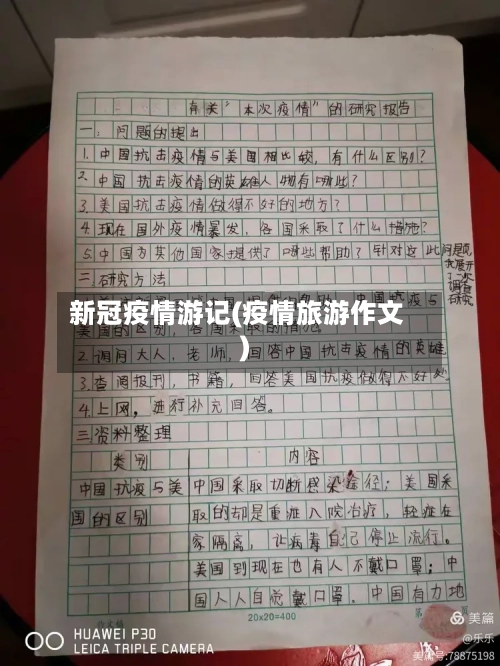 有关"本次疫情"的研究报告
一、问题的提出
1.中国抗击疫情与美国相比较，有什么区别？
2.中国抗击疫情的英雄人物有哪些？
3.美国抗击疫情做得不好的地方？
4.现在国外疫情暴发，各国采取了什么措施？
5.中国为其他国家提供了哪些帮助？针对这此
问题我
展开
了一次
调查
研究
二研究方法
新冠疫情游记(疫情旅游作文
)
美国的区别
2.调问大人、老师，回答中国抗击疫情的英雄
3.查阅报刊，书籍，回答美国抗疫做得不好处
4.上网，进行补充回答。
三资料整理
类别 内容
中国抗疫与美 中国采取切断感染途径；美国采
国的区别 取的却是重症入院治疗，轻症在
家隔离，让病毒自己停止流行。
美国到现在也有人不戴口罩；中
国人人自觉戴口罩。中国有力地
20x20=400
HUAWEI P30
LEICA TRIPLE CAMERA
美篇
@乐乐
美篇号:78875198